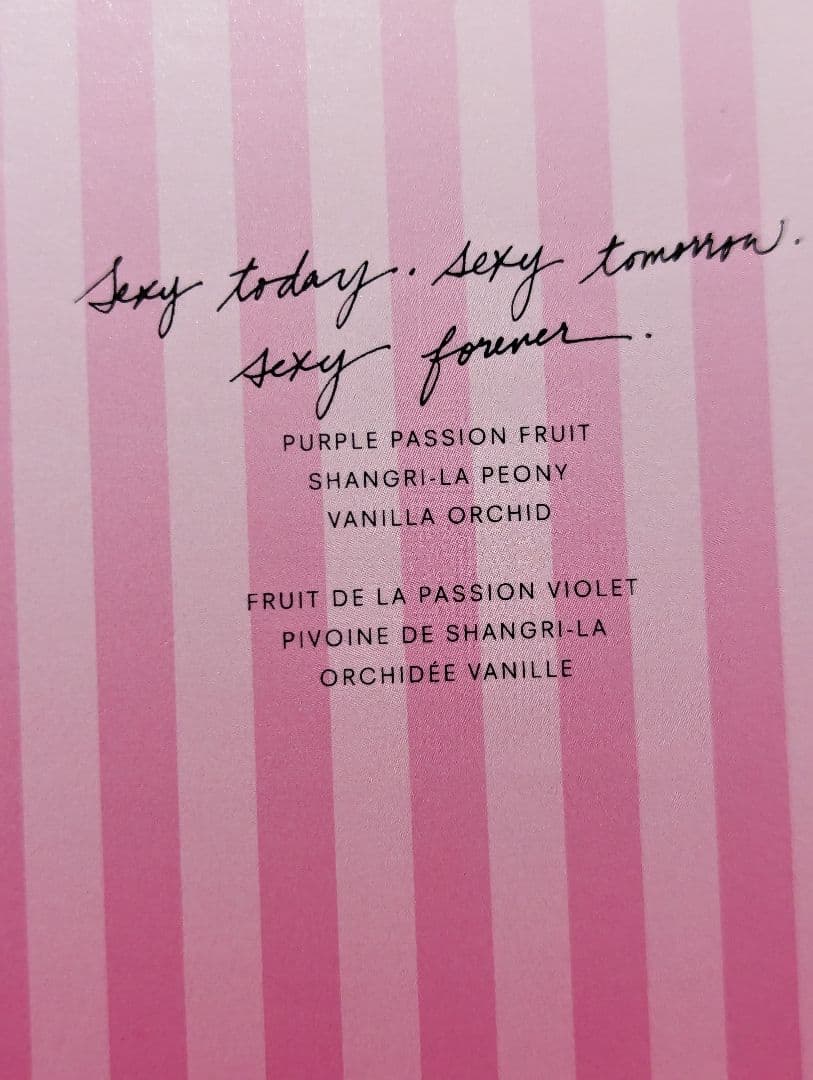 Sexy today. Sexy tomorrow.
Sexy forever.
PURPLE PASSION FRUIT
SHANGRI-LA PEONY
VANILLA ORCHID
FRUIT DE LA PASSION VIOLET
PIVOINE DE SHANGRI-LA
ORCHIDÉE VANILLE